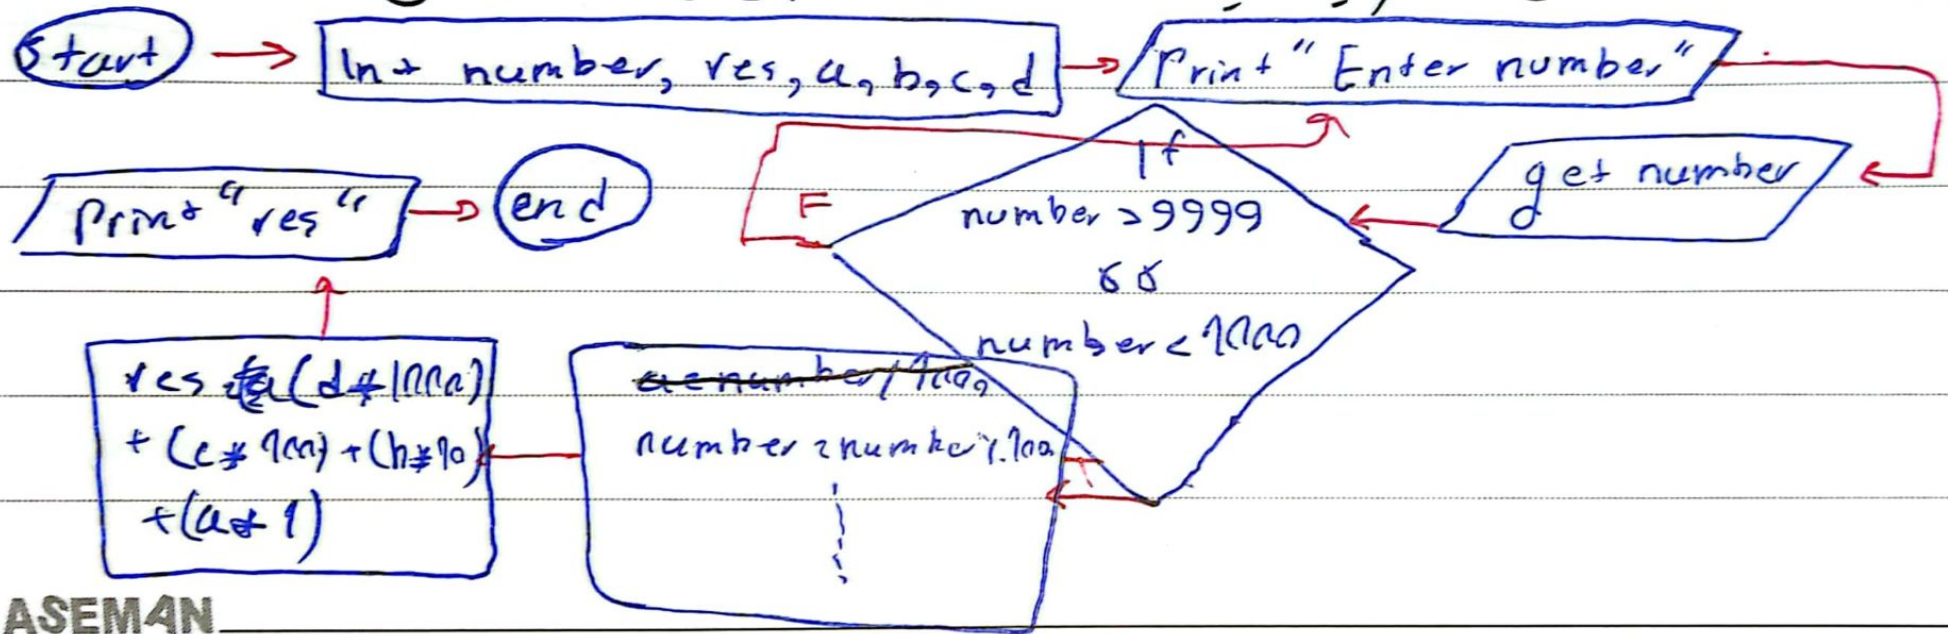 start
Int number, res, a, b, c, d
Print "Enter number"
get number
If
number > 9999
&&
number < 1000
F
T
a = number / 1000
number = number % 100
res = (d * 1000)
+ (c * 100) + (b * 10)
+ (a * 1)
Print "res"
end
ASEMAN